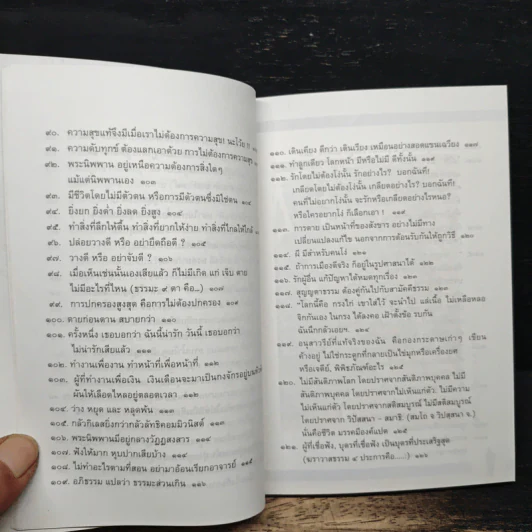 ๙๐. ความสุขแท้จึงมีเมื่อเราไม่ต้องการความสุข! นะโว้ย !!
๙๑. ความดับทุกข์ ต้องแลกเอาด้วย การไม่ต้องการความสุข
๙๒. พระนิพพาน อยู่เหนือความต้องการสิ่งใดๆ
แม้แต่นิพพานเอง ๑๐๓
๙๓. มีชีวิตโดยไม่มีตัวตน หรือการมีตัวตนซึ่งมิใช่ตน ๑๐๔
๙๔. ยิ่งยก ยิ่งต่ำ ยิ่งลด ยิ่งสูง
๙๕. ทำสิ่งที่ลึกให้ตื้น ทำสิ่งที่ยากให้ง่าย ทำสิ่งที่ไกลให้ใกล้
๙๖. ปล่อยวางดี หรือ อย่ายึดถือดี ? ๑๐๕
๙๗. วางดี หรือ อย่าจับดี ?
๙๘. เมื่อเห็นเช่นนั้นเองเสียแล้ว ก็ไม่มีเกิด แก่ เจ็บ ตาย
ไม่มีอะไรที่ไหน (ธรรมะ ๙ ตา คือ...) ๑๐๘
๙๙. การปกครองสูงสุด คือการไม่ต้องปกครอง ๑๐๙
๑๐๐. ตายก่อนตาน สบายกว่า ๑๑๐
๑๐๑. ครั้งหนึ่ง เธอบอกว่า ฉันนี่น่ารัก วันนี้ เธอบอกว่า
ไม่น่ารักเสียแล้ว ๑๑๑
๑๐๒. ทำงานเพื่องาน ทำหน้าที่เพื่อหน้าที่
๑๐๓. ผู้ที่ทำงานเพื่อเงิน เงินเดือนจะมาเป็นกงจักรอยู่บน
ผันให้เลือดไหลอยู่ตลอดเวลา
๑๐๔. ว่าง หยุด และ หลุดพ้น
๑๐๕. กลัวกิเลสยิ่งกว่ากลัวลัทธิคอมมิวนิสต์
๑๐๖. พระนิพพานมีอยู่กลางวัฏฏสงสาร
๑๐๗. ฟังให้มาก หุบปากเสียบ้าง
๑๐๘. ไม่ทำอะไรตามที่สอน อย่ามาอ้อนเรียกอาจารย์
๑๐๙. อภิธรรม แปลว่า ธรรมะส่วนเกิน ๑๑๖
๑๑๐. เดินเคียง ดีกว่า เดินเรียง เหมือนอย่างสอดแขนเฉวียง ๑๑๗
๑๑๑. ทำลูกเดียว โลกหน้า มีหรือไม่มี ดีทั้งนั้น ๑๑๙
๑๑๒. รักโดยไม่ต้องโง่นั้น รักอย่างไร? บอกฉันที!
เกลียดโดยไม่ต้องโง่นั้น เกลียดอย่างไร? บอกฉันที!
คนที่ไม่อยากโง่นั้น จะรักหรือเกลียดอย่างไรหนอ?
หรือใครอยากโง่ ก็เลือกเอา !
๑๑๓. การตาย เป็นหน้าที่ของสังขาร อย่างไม่มีทาง
เปลี่ยนแปลงแก้ไข นอกจากการต้อนรับกันให้ถูกวิธี
๑๑๔. ผี มีสำหรับคนโง่ ๑๒๑
๑๑๕. ถ้าการเมืองดีจริง ก็อยู่ในรูปศาสนาได้ ๑๒๒
๑๑๖. รักผู้อื่น แก้ปัญหาได้หมดทุกเรื่อง ๑๒๑
๑๑๗. สุญญตาธรรม ต้องคู่กันไปกับสามัคคีธรรม
๑๑๘. "โลกนี้คือ กรงไก่ เขาใส่ไว้ จะนำไป แล่เนื้อ ไม่เหลือหลอ
จิกกันเอง ในกรง ได้ลงคอ เฝ้าตั้งข้อ รบกัน
ฉันนึกกลัวเอยฯ. ๑๒๔
๑๑๙. อนุสาวรีย์ที่แท้จริงของฉัน คือกองกระดาษเก่าๆ เขียน
ค้างอยู่ ไม่ใช่กระดูกที่กลายเป็นไข่มุกหรือเครื่องยศ
หรือเจดีย์, พิพิธภัณฑ์อะไร ๑๒๕
๑๒๐. ไม่มีสันติภาพโลก โดยปราศจากสันติภาพบุคคล ไม่มี
สันติภาพบุคคล โดยปราศจากความไม่เห็นแก่ตัว: ไม่มีความ
ไม่เห็นแก่ตัว โดยปราศจากสติสมบูรณ์ ไม่มีสติสมบูรณ์
โดยปราศจาก วิปัสสนา - สมาธิ: (สมโถ จ วิปสฺสนา จ.)
นั่นคือชีวิต มรรคมีองค์แปด ๑๒๕
๑๒๑. ผู้ที่เชื่อฟัง, บุตรที่เชื่อฟัง เป็นบุตรที่ประเสริฐสุด
(ฆราวาสธรรม ๔ ประการคือ.....) ๑๒๖